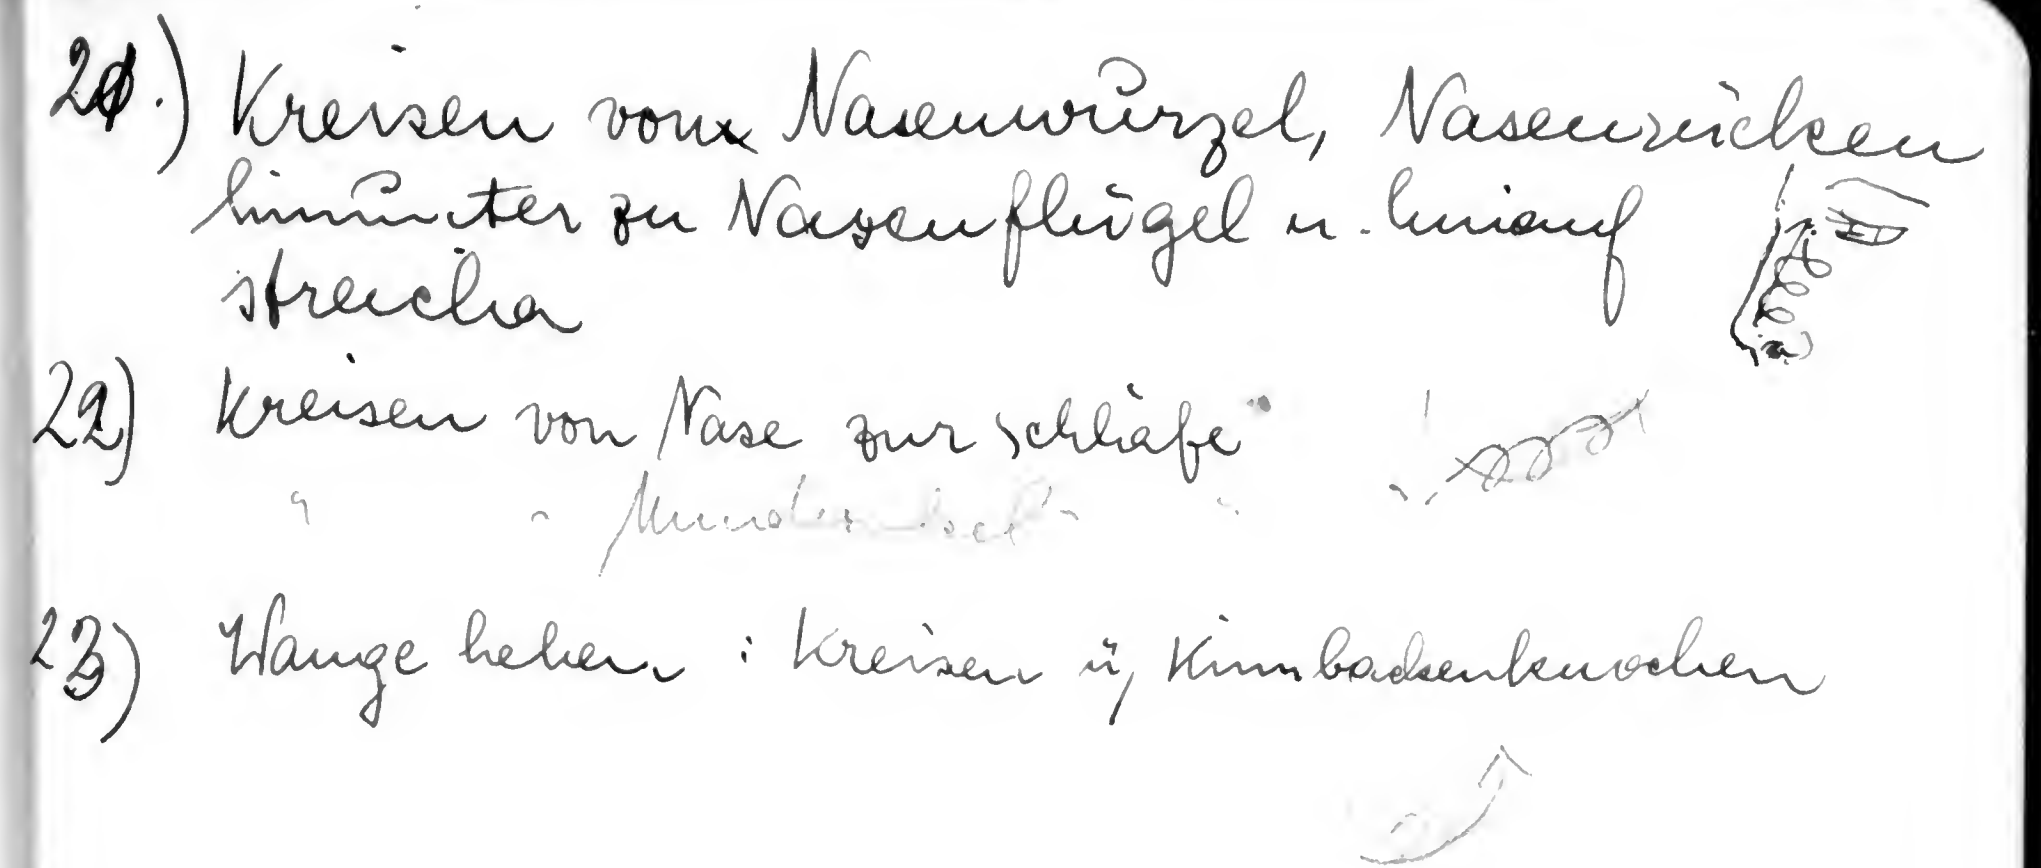 21.) Kreisen von Nasenwurzel, Nasenrücken
hinunter zu Nasenflügel u. hinauf
streichen
22) Kreisen von Nase zur Schläfe
" " "
23) Wange heben : Kreisen ü, Kinnbackenknochen